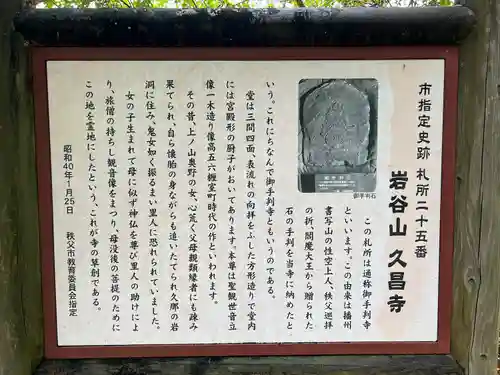 市指定史跡 札所二十五番
岩谷山 久昌寺
この札所は通称御手判寺
といいます。この由来は播州
書写山の性空上人、秩父巡拝
の折、閻魔大王から贈られた
石の手判を当寺に納めたと
御手判石
いう。これにちなんで御手判寺ともいうのである。
堂は三間四面、表流れの向拝をふした方形造りで室内
には宮殿形の厨子がおいてあります。本尊は聖観世音立
像一木造り像高五六糎室町時代の作といわれます。
その昔、上ノ山奥野の女、心荒く父母親類縁者にも疎み
果てられ、自ら懐胎の身ながらも追いたてられ久那の岩
洞に住み、鬼女如く振るまい里人に恐れられていました。
女の子生まれて母に似ず神仏を尊び里人の助けによ
り、旅僧の持ちし観音像をまつり、母没後の菩提のために
この地を霊地にしたという、これが寺の草創である。
昭和40年1月25日 秩父市教育委員会指定